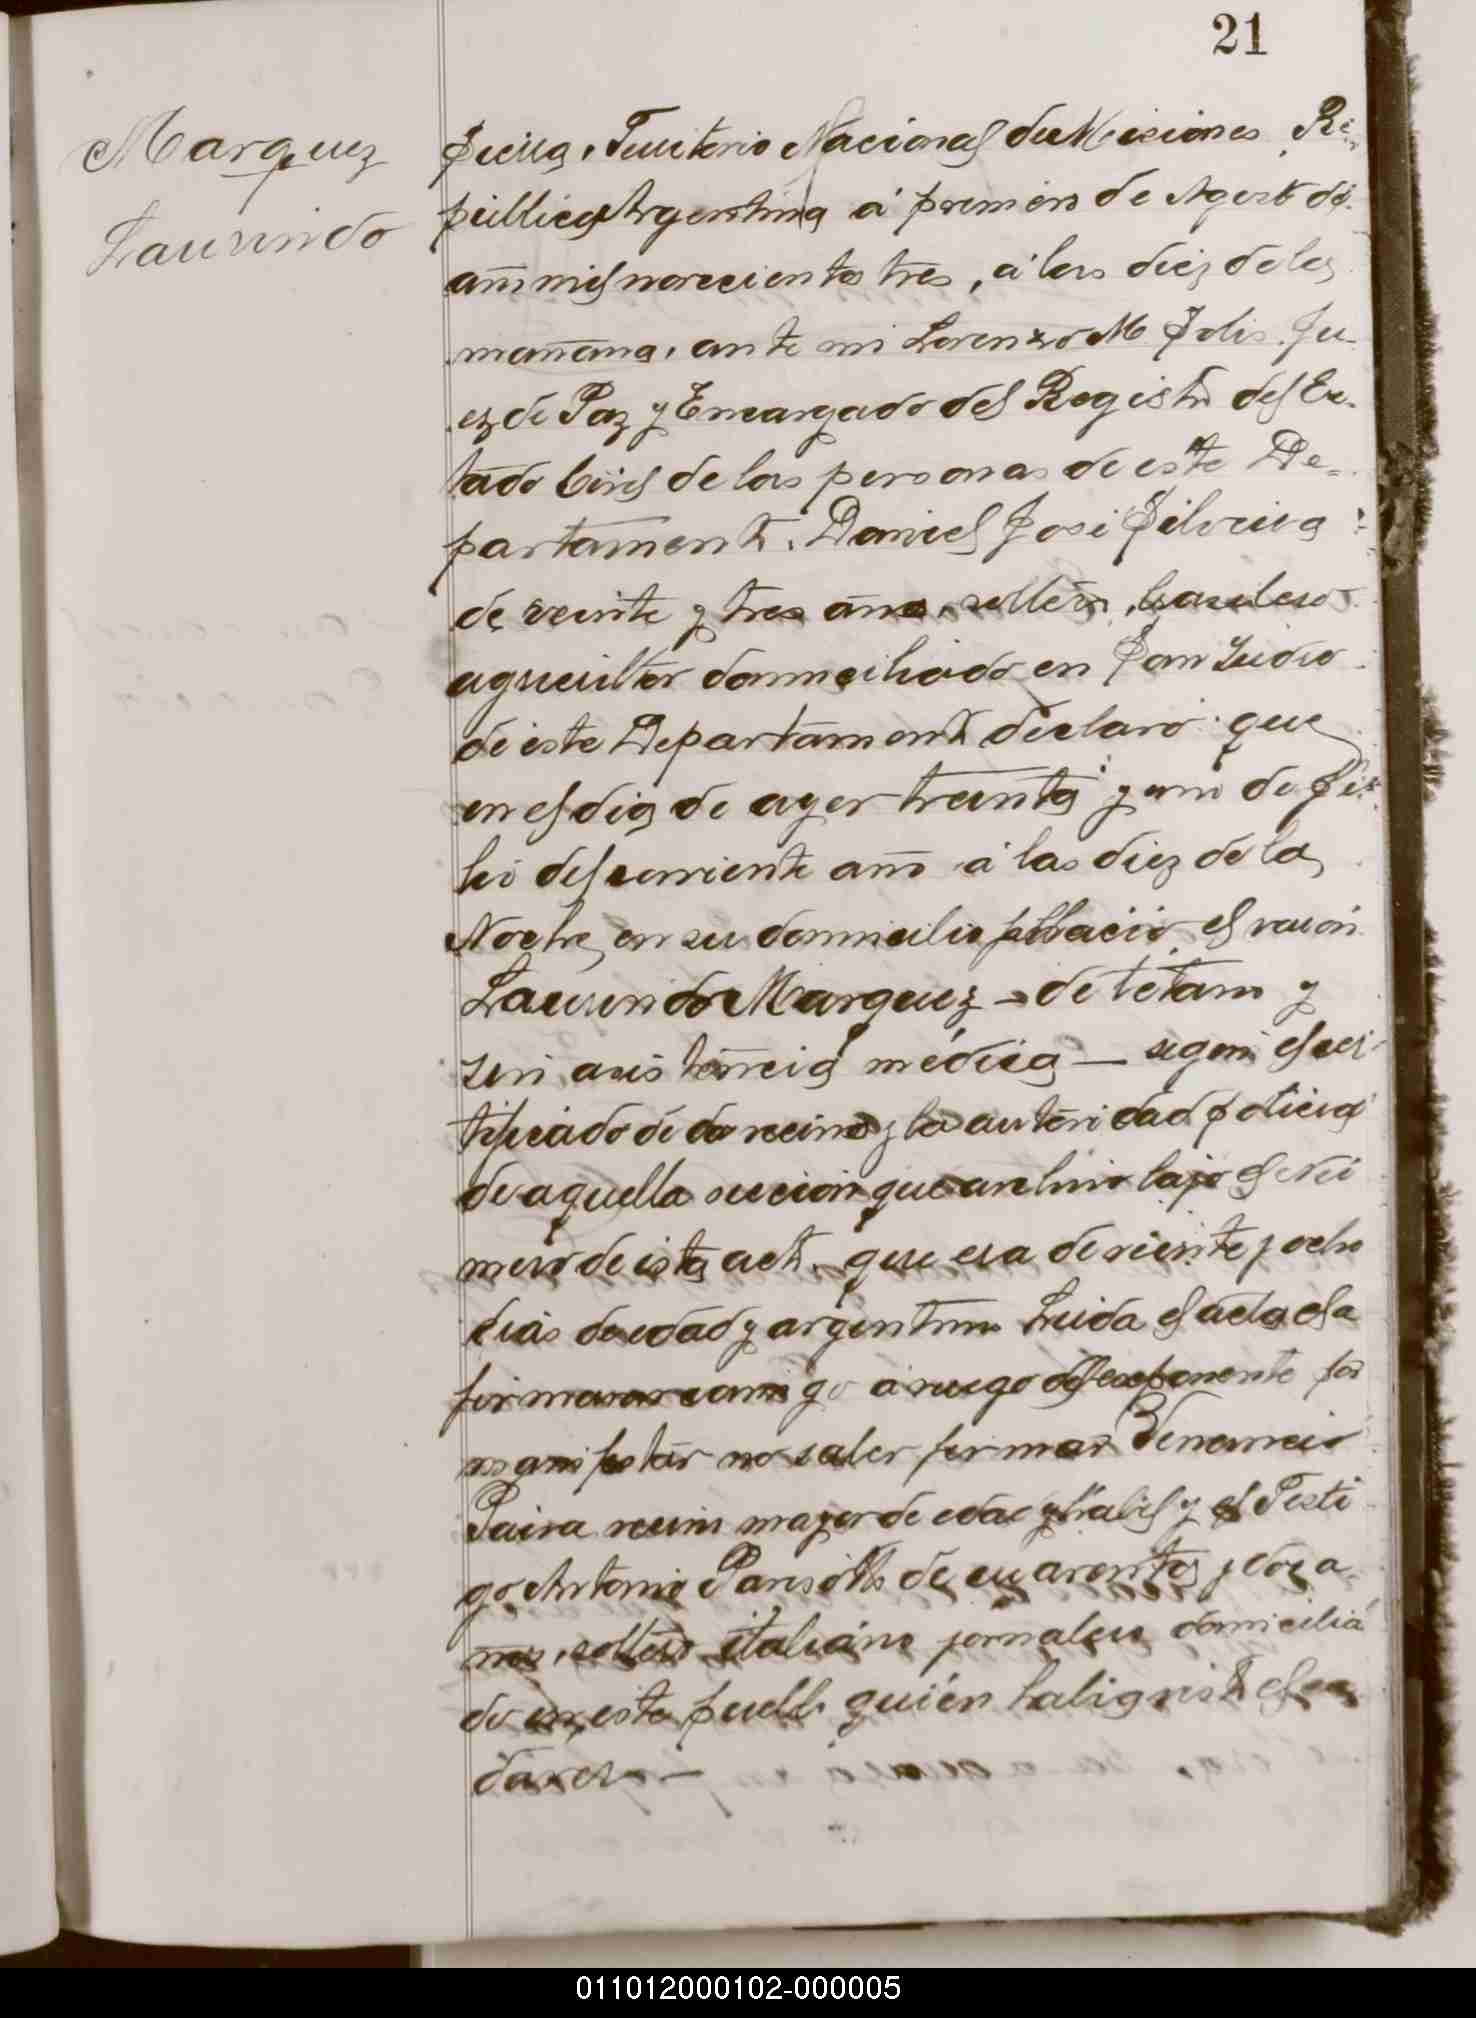 21
Marquez
Laurindo
Territorio Nacional de Misiones, Re-
pública Argentina á primero de Agosto de
año mil novecientos tres, á las diez de la
mañana, ante mi Lorenzo M Solis. Ju-
ez de Paz y Encargado del Registro del Es-
tado Civil de las personas de este De-
partamento, Daniel José Silveira
de veinte y tres años, soltero, brasilero
agricultor domiciliado en San Isidro
de este Departamento declaró: que
en el dia de ayer treinta y uno de Ju-
lio del corriente año á las diez de la
Noche, en su domicilio falleció el varón
Laurindo Marquez - de tétano y
sin asistencia médica — segun el cer-
tificado de dos vecinos y la autoridad policial
de aquella seccion que archivo bajo el Nú
mero de esta acta. que era de veinte y ocho
dias de edad y argentino Leida el acta la
firmaron conmigo á ruego del exponente por
manifestar no saber firmar Venancio
Paiva vecino mayor de edad y habil y el Testi
go Antonio de cuarenta y dos a-
ños, soltero italiano jornalero domicilia
do en este pueblo quién ha visto el ca
daver. —
011012000102-000005